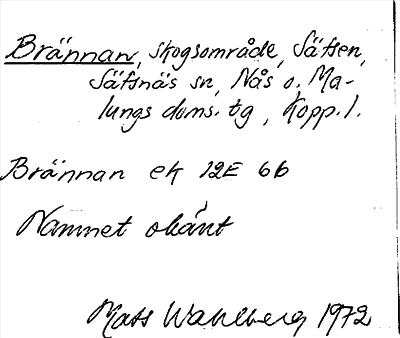 Brännan, skogsområde, Säfsen,
Säfsnäs sn, Nås o. Ma-
lungs doms. tg, Kopp. l.
Brännan ek 12E 6b
Namnet okänt
Mats Wahlberg 1972